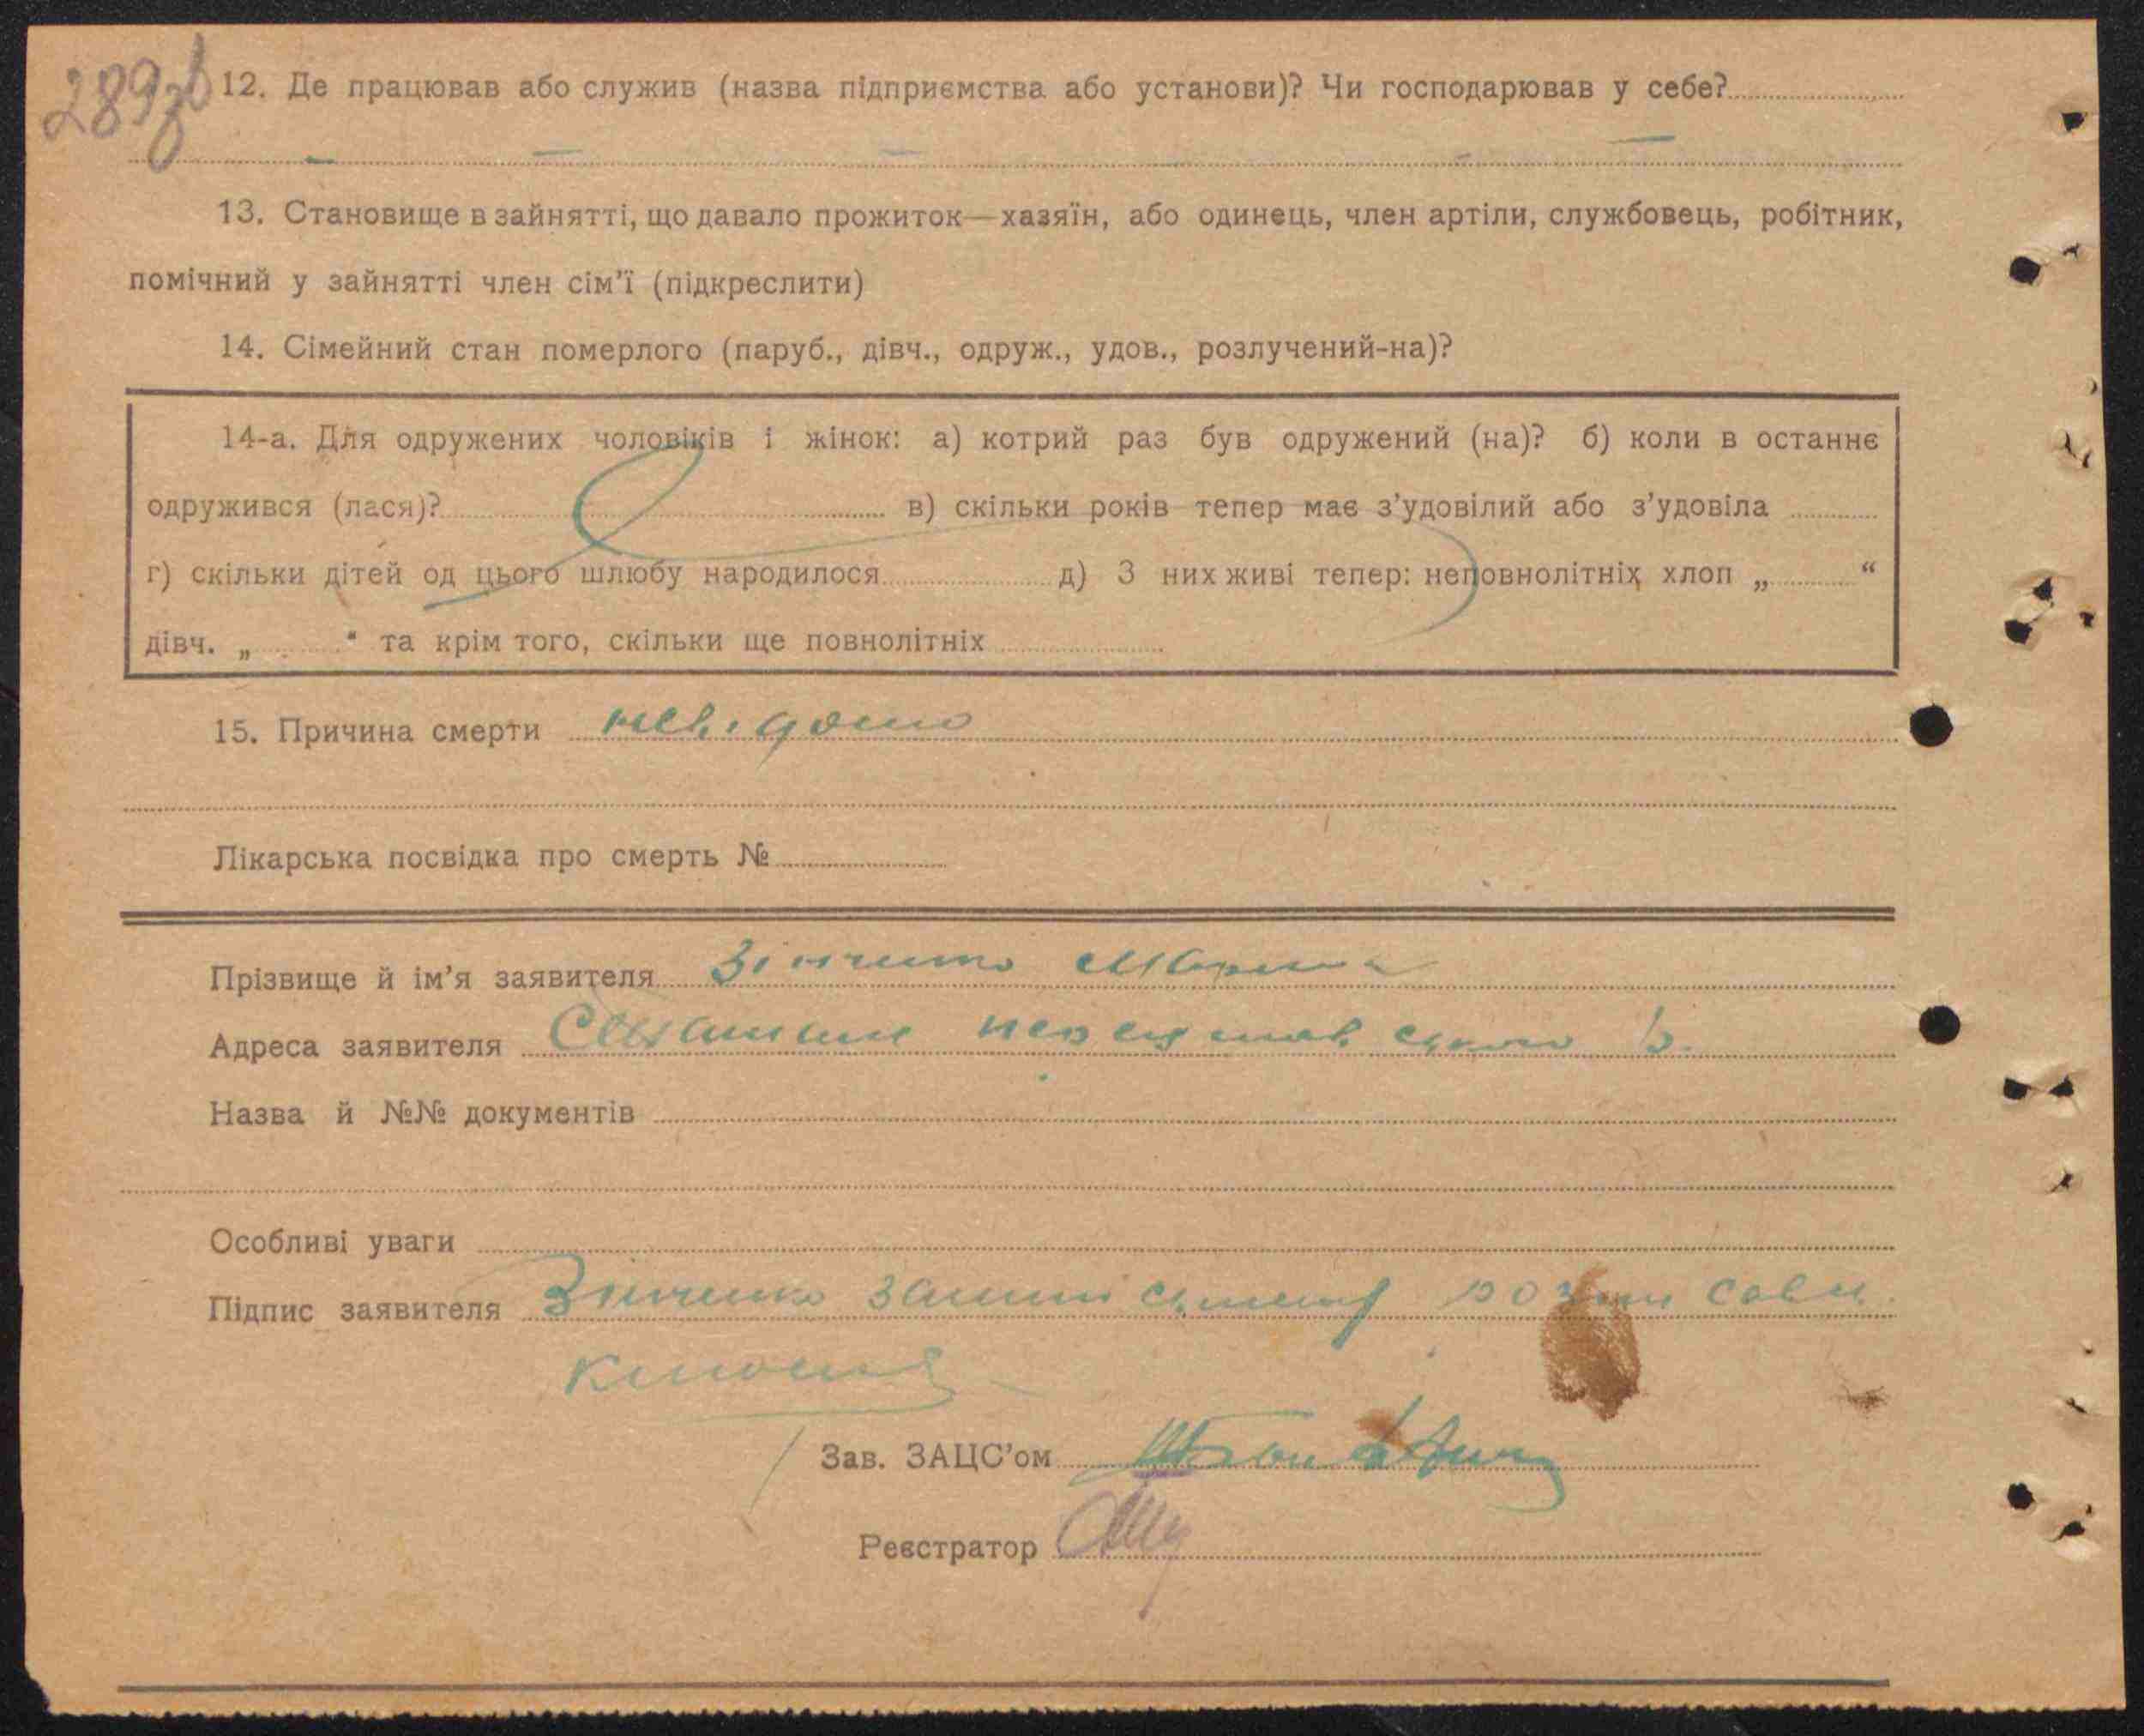 289зв
12. Де працював або служив (назва підприємства або установи)? Чи господарював у себе?
13. Становище в зайнятті, що давало прожиток—хазяїн, або одинець, член артіли, службовець, робітник,
помічний у зайнятті член сім'ї (підкреслити)
14. Сімейний стан померлого (паруб., дівч., одруж., удов., розлучений-на)?
14-а. Для одружених чоловіків і жінок: а) котрий раз був одружений (на)? б) коли в останнє
одружився (лася)? в) скільки років тепер має з'удовілий або з'удовіла
г) скільки дітей од цього шлюбу народилося д) З них живі тепер: неповнолітніх хлоп „ “
дівч. „ “ та крім того, скільки ще повнолітніх
15. Причина смерти невідомо
Лікарська посвідка про смерть №
Прізвище й ім'я заявителя Зінченко Марина
Адреса заявителя
Назва й №№ документів
Особливі уваги
Підпис заявителя Зінченко
Зав. ЗАЦС'ом
Реєстратор